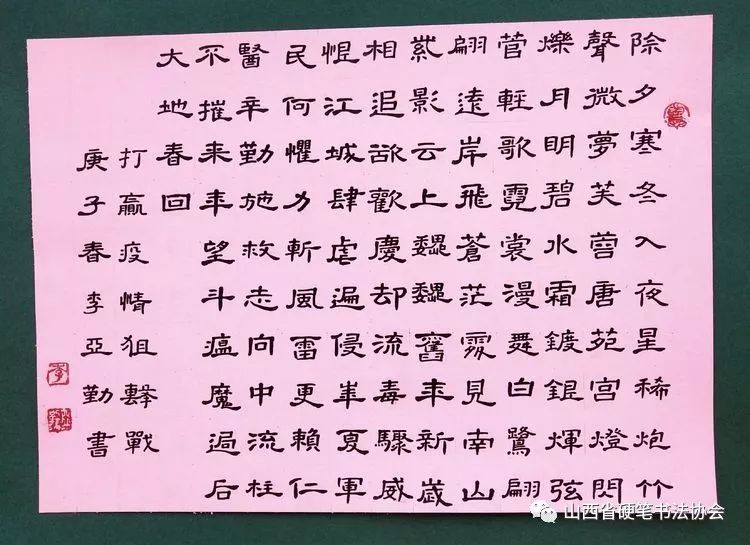 除夕寒冬入夜星稀炮竹
聲微夢芙蓉唐苑宮燈閃
爍月明碧水霜鍍銀煇弦
管輕歌霓裳漫舞白鷺翩
翩遠岸飛蒼茫霧見南山
紫影云上巍巍舊年新歲
相追欲歡慶却流毒驟威
惶江城肆虐遍侵華夏軍
民何懼力斬風雷更賴仁
醫辛勤施救志向中流柱
不摧来年望斗瘟魔過后
大地春回
打贏疫情狙擊戰
庚子春李亞勤書
李
山西省硬笔书法协会